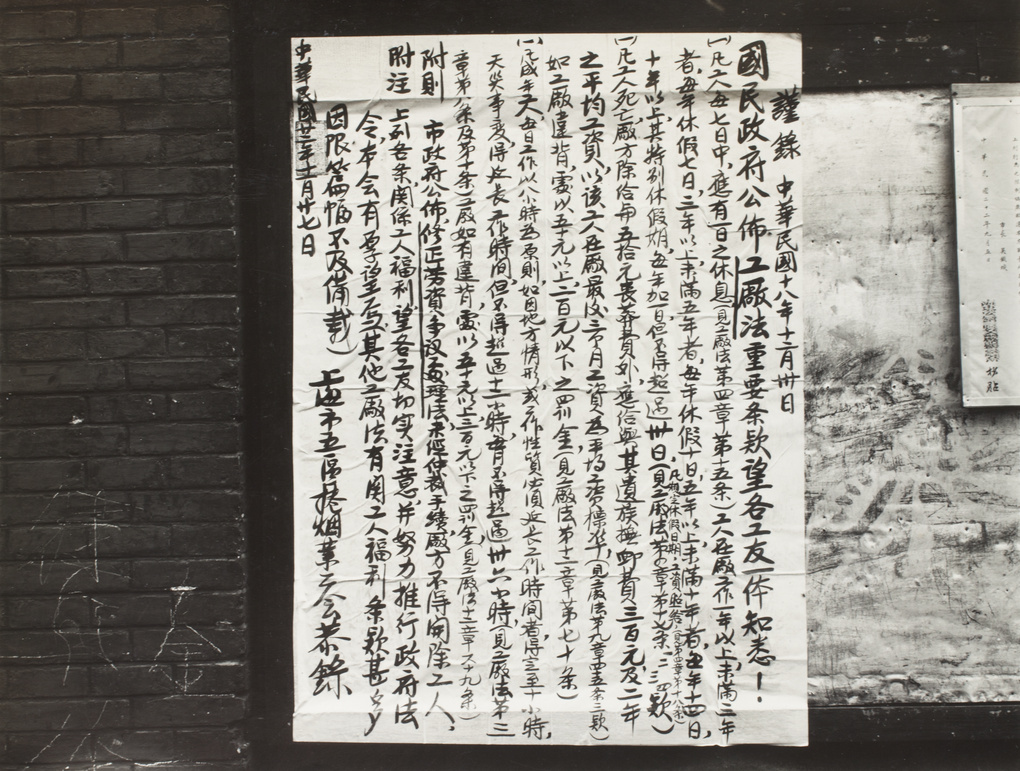 謹錄 中華民國十八年十二月卅日
國民政府公佈工廠法重要条欵望各工友一体知悉！
(一)凡工人每七日中,應有一日之休息(見工廠法第四章第十五条)工人在廠工作一年以上,未滿三年
者,每年休假七日,三年以上未滿五年者,每年休假十日,五年以上未滿十年者,每年十四日,
十年以上,其特別休假期,每年加一日但不得超過卅日(見工廠法第四章第十七条一二三四欵)
凡照定休假日期,工資照給(見第四章第十八条)
(一)凡工人死亡,廠方除給与五拾元喪葬費外,應給與其遺族撫卹費三百元,及二年
之平均工資,以該工人在廠最後三个月工資為平均工資標準,(見工廠法第九章四五条三欵)
如工廠違背,處以五十元以上二百元以下之罰金(見工廠法第十二章第七十条)
(一)凡成年工人每日工作以八小時為原則,如因地方情形,或工作性質,必須延長工作時間者,得定至十小時,
天災事変,得延長工作時間,但不得超過十二小時,每月不得超過卅六小時(見工廠法第三
章第八条及第十条)工廠如有違背,處以五十元以上三百元以下之罰金(見工廠法十二章六十九条)
附則 市政府公佈,修正勞資爭议處理法,未經仲裁手續,廠方不得開除工人,
附注 上列各条,関係工人福利,望各工友切实注意,并努力推行政府法
令,本会有厚望焉,其他工廠法有関工人福利条欵甚多
因限篇幅不及備載)上海市五區捲烟業工会恭錄
中華民國廿二年十一月廿七日